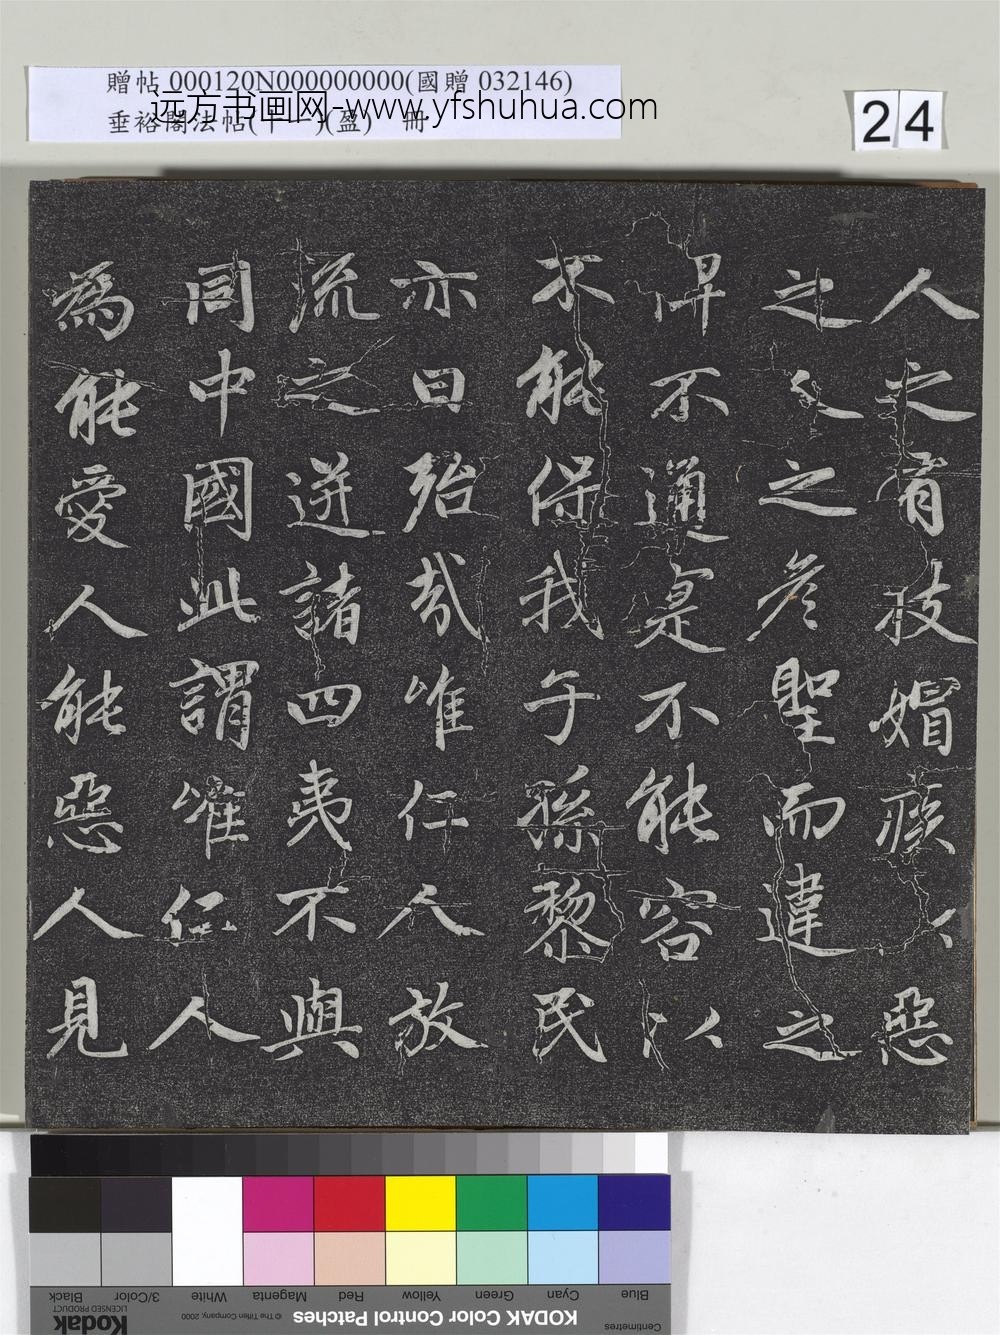 贈帖 000120N000000000(國贈 032146)
远方书画网-www.yfshuhua.com
垂裕閣法帖(盈) 冊
24
人之有技媢疾以惡
之人之彥聖而違之
俾不通寔不能容以
不能保我子孫黎民
亦曰殆哉唯仁人放
流之迸諸四夷不與
同中國此謂唯仁人
為能愛人能惡人見
Centimetres
Blue Cyan Green Yellow Red Magenta White 3/Color Black
KODAK Color Control Patches
© The Tiffen Company, 2000
Kodak
LICENSED PRODUCT